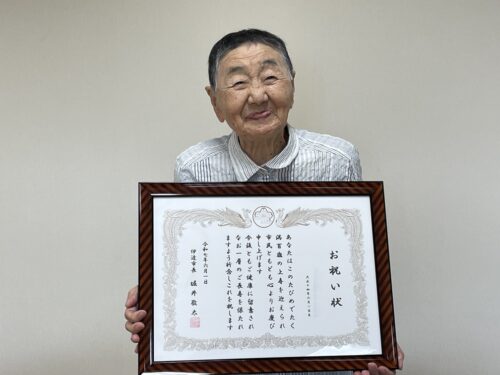 お祝い状
大正十四年六月一日生
あなたはこのたびめでたく
満百歳の上寿を迎えられ
市民ともども心よりお慶び
申し上げます
今後ともご健康に留意され
なお一層のご長寿を保たれ
ますよう祈念しこれを祝します
令和七年六月一日
伊達市長　堀井敬太